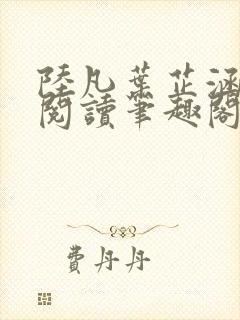 陸凡葉芷涵
閱讀筆趣閣
費丹丹